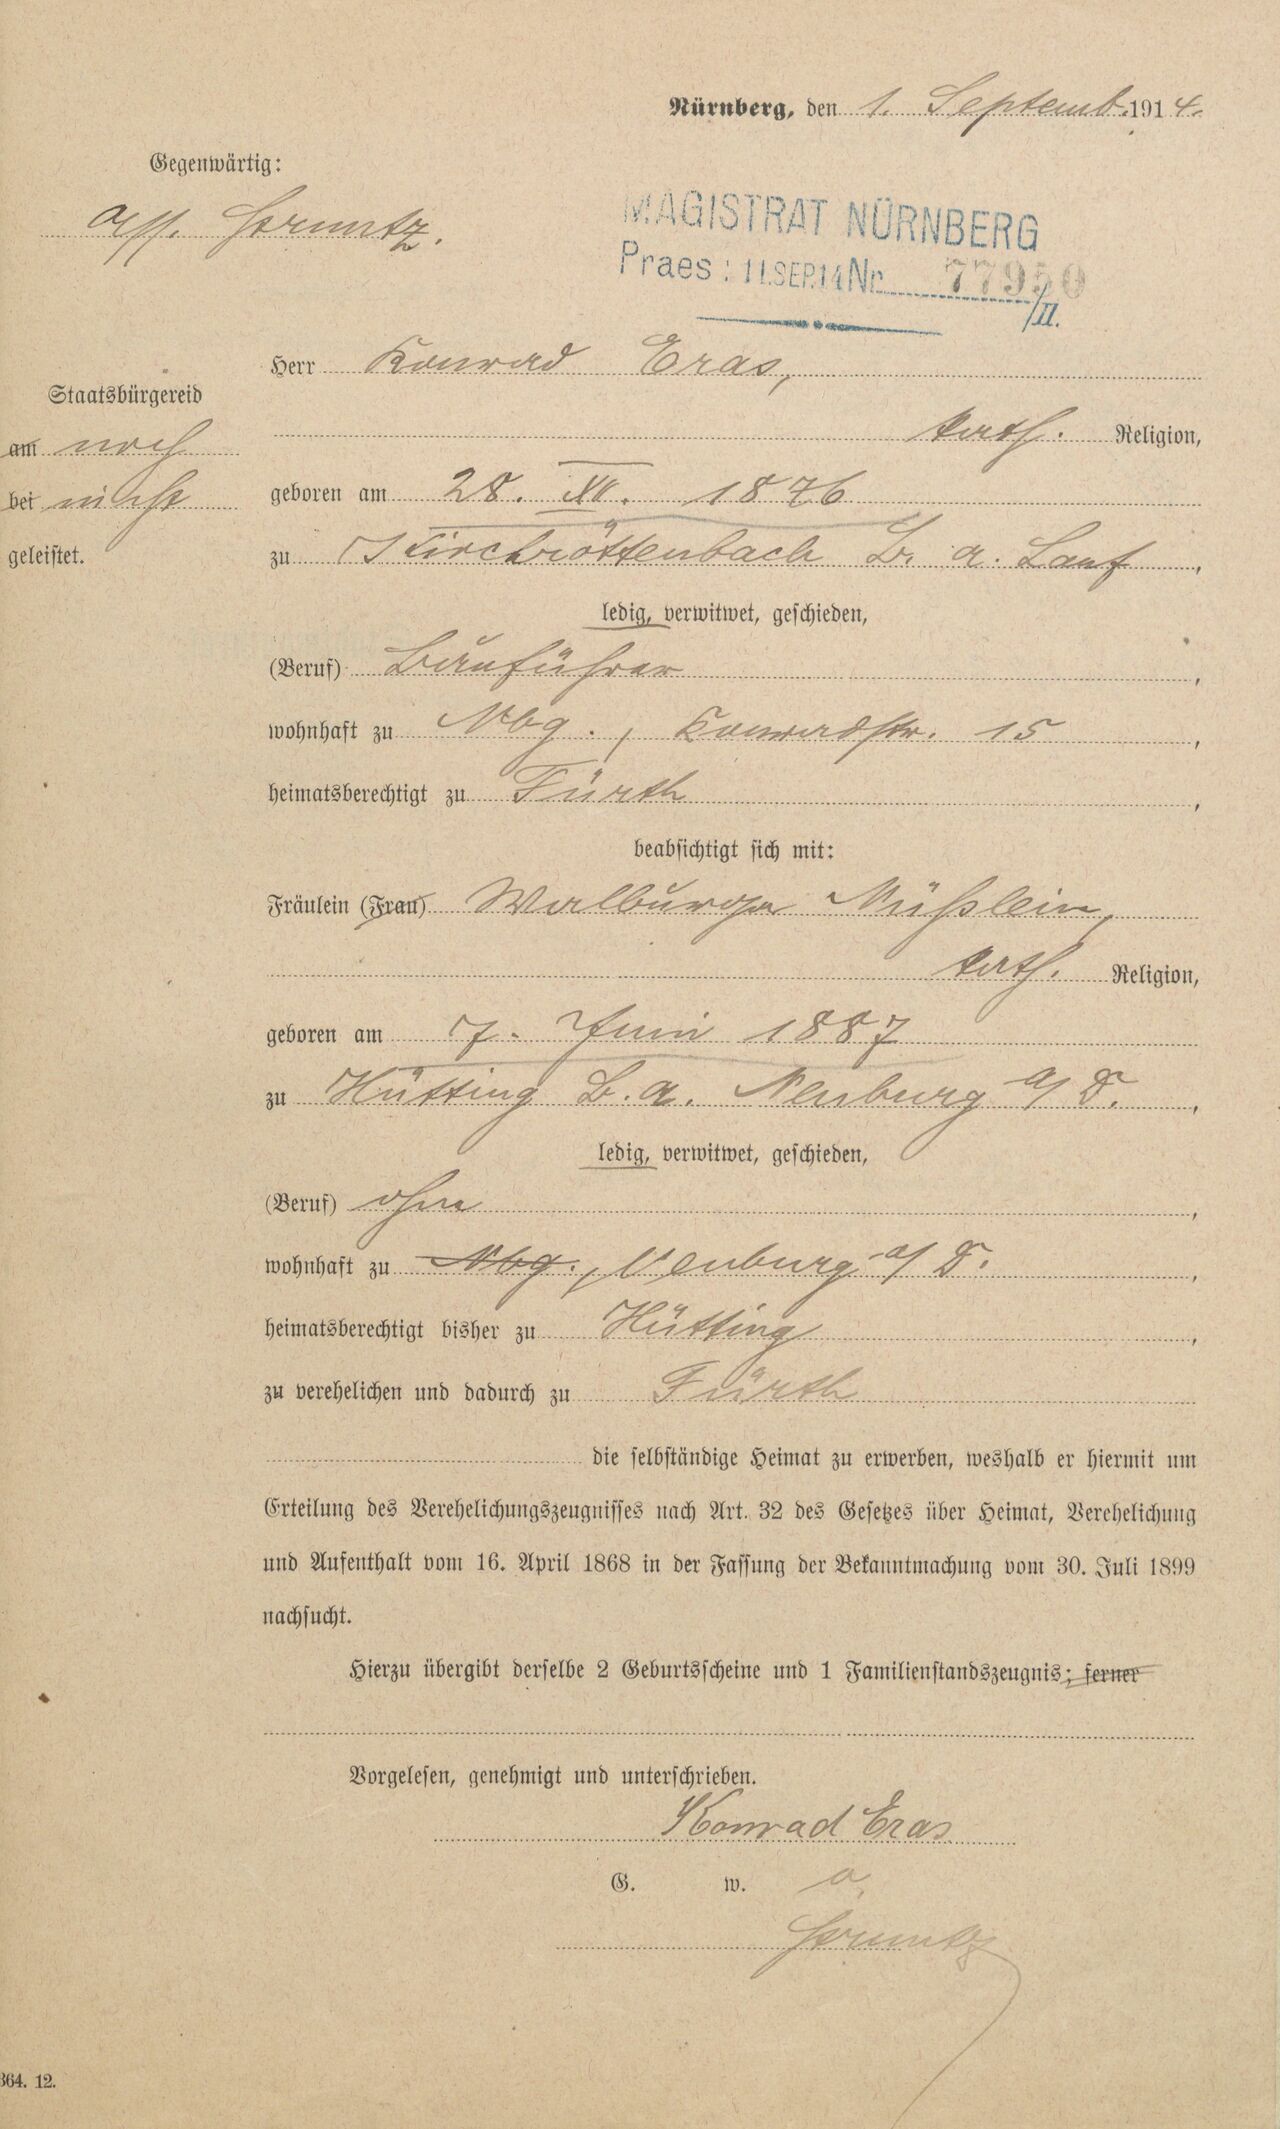 Nürnberg, den 1. Septemb. 1914.
Gegenwärtig:
MAGISTRAT NÜRNBERG
Praes: 11.SEP.14 Nr. 77950
/II.
Herr Konrad Eras,
Staatsbürgereid
kath. Religion,
am noch
geboren am 28. XII. 1876
bei nicht
geleistet.
zu Kirchröttenbach B. a. Lauf,
ledig, verwitwet, geschieden,
(Beruf) Bauführer,
wohnhaft zu Nbg., Konradstr. 15,
heimatsberechtigt zu Fürth,
beabsichtigt sich mit:
Fräulein (Frau) Walburga Müßlein,
kath. Religion,
geboren am 7. Juni 1887
zu Hütting B. a. Neuburg a/D.,
ledig, verwitwet, geschieden,
(Beruf) ohne,
wohnhaft zu Nbg., Neuburg a/D.,
heimatsberechtigt bisher zu Hütting,
zu verehelichen und dadurch zu Fürth
die selbständige Heimat zu erwerben, weshalb er hiermit um
Erteilung des Verehelichungszeugnisses nach Art. 32 des Gesetzes über Heimat, Verehelichung
und Aufenthalt vom 16. April 1868 in der Fassung der Bekanntmachung vom 30. Juli 1899
nachsucht.
Hierzu übergibt derselbe 2 Geburtsscheine und 1 Familienstandszeugnis; ferner
Vorgelesen, genehmigt und unterschrieben.
Konrad Eras
G. w. o.
364. 12.